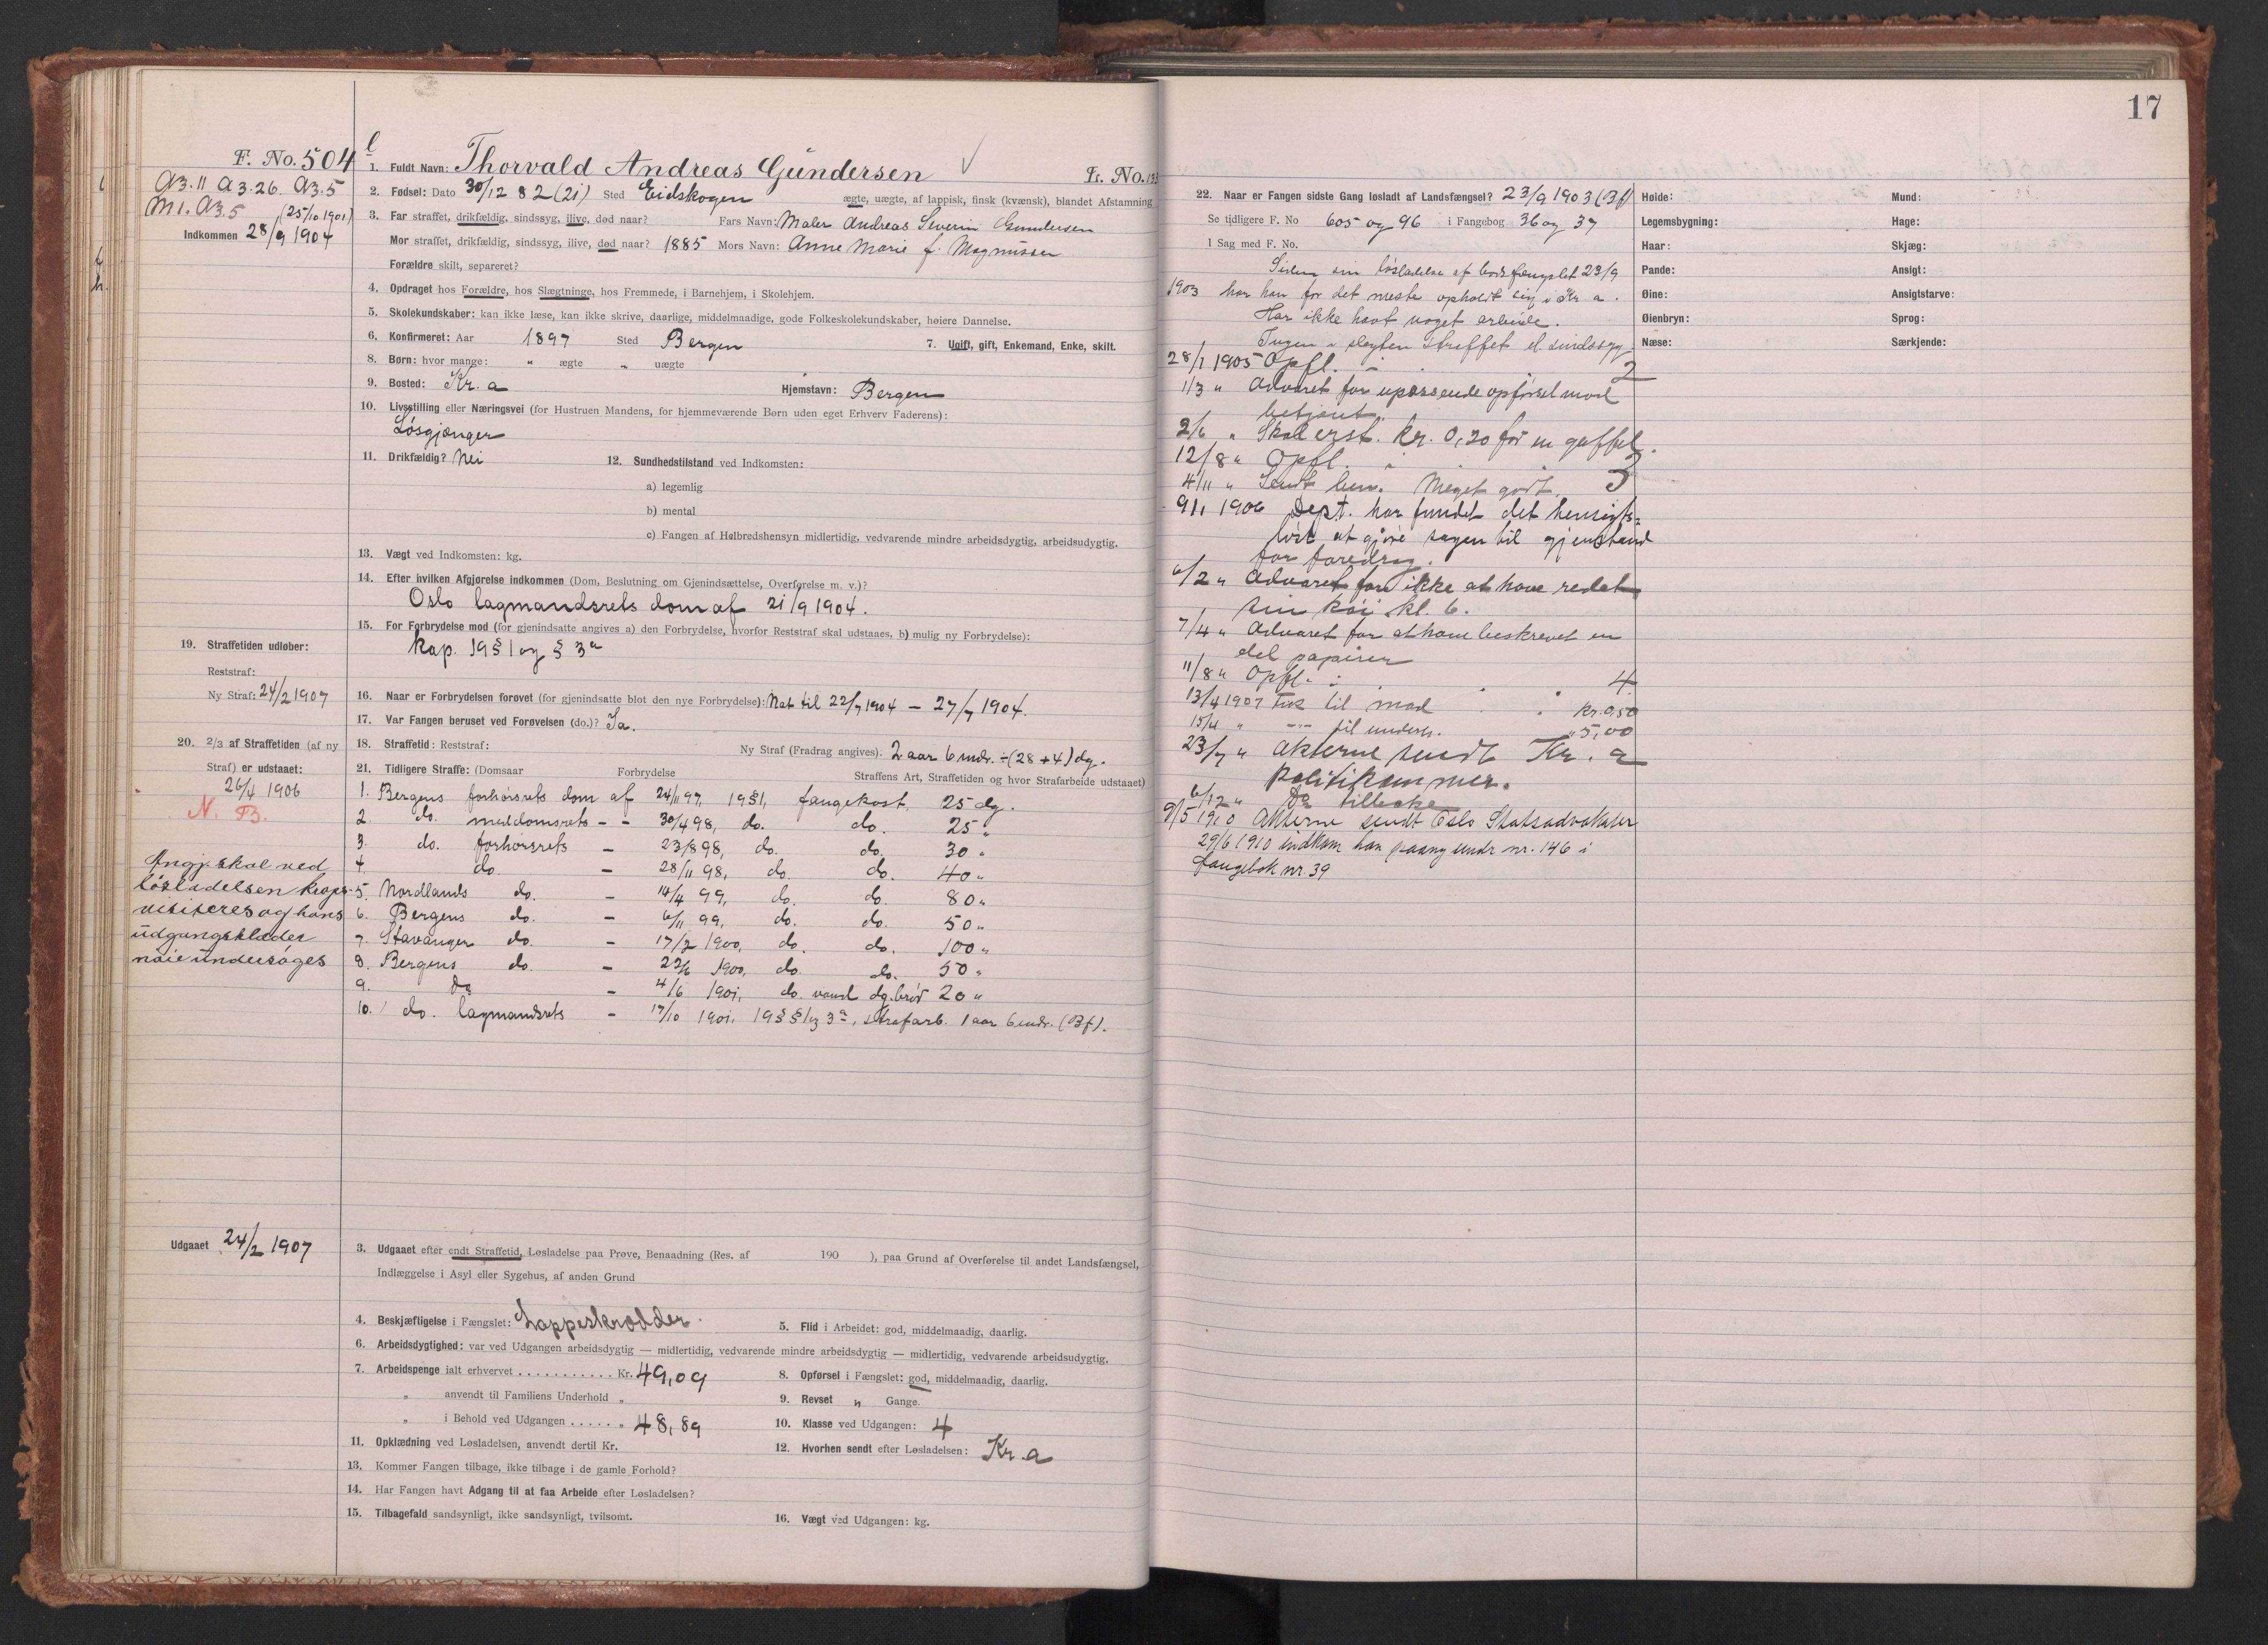 17
F. No. 504
1. Fuldt Navn: Thorvald Andreas Gundersen
Fr. No. 13
A3.11 A3.26. A3.5
M1. A3.5 (25/10 1901)
Indkommen 28/9 1904
2. Fødsel: Dato 30/12 82 (21) Sted Eidskogen ægte, uægte, af lappisk, finsk (kvænsk), blandet Afstamning
3. Far straffet, drikfældig, sindssyg, ilive, død naar? Fars Navn: Maler Andreas Severin Gundersen
Mor straffet, drikfældig, sindssyg, ilive, død naar? 1885 Mors Navn: Anne Marie f. Magnussen
Forældre skilt, separeret?
4. Opdraget hos Forældre, hos Slægtninge, hos Fremmede, i Barnehjem, i Skolehjem.
5. Skolekundskaber: kan ikke læse, kan ikke skrive, daarlige, middelmaadige, gode Folkeskolekundskaber, høiere Dannelse.
6. Konfirmeret: Aar 1897 Sted Bergen 7. Ugift, gift, Enkemand, Enke, skilt.
8. Børn: hvor mange: " ægte " uægte
9. Bosted: Kr.a Hjemstavn: Bergen
10. Livsstilling eller Næringsvei (for Hustruen Mandens, for hjemmeværende Børn uden eget Erhverv Faderens):
Løsgjænger
11. Drikfældig? Nei 12. Sundhedstilstand ved Indkomsten:
a) legemlig
b) mental
c) Fangen af Helbredshensyn midlertidig, vedvarende mindre arbeidsdygtig, arbeidsudygtig.
13. Vægt ved Indkomsten: kg.
14. Efter hvilken Afgjørelse indkommen (Dom, Beslutning om Gjenindsættelse, Overførelse m. v.)?
Oslo lagmandsrets dom af 21/9 1904.
15. For Forbrydelse mod (for gjenindsatte angives a) den Forbrydelse, hvorfor Reststraf skal udstaaes, b) mulig ny Forbrydelse):
Kap. 19 § 1 og § 3a
19. Straffetiden udløber:
Reststraf:
Ny Straf: 24/2 1907
16. Naar er Forbrydelsen forøvet (for gjenindsatte blot den nye Forbrydelse): Nat til 22/7 1904 — 27/7 1904.
17. Var Fangen beruset ved Forøvelsen (do.)? Ja.
20. 2/3 af Straffetiden (af ny Straf) er udstaaet:
26/4 1906
N. B.
18. Straffetid: Reststraf: Ny Straf (Fradrag angives): 2 aar 6 mdr. ÷ (28 + 4) dg.
21. Tidligere Straffe: (Domsaar Forbrydelse Straffens Art, Straffetiden og hvor Strafarbeide udstaaet)
1. Bergens forhørsrets dom af 24/11 97, 19 § 1, fangekost. 25 dg.
2. do. meddomsrets - - 30/4 98, do. do. 25 "
3. do. forhørsrets - 23/8 98, do. do. 30 "
4. do. - 28/11 98, do. do. 40 "
5. Nordlands do. - 14/4 99, do. do. 80 "
6. Bergens do. - 6/11 99, do. do. 50 "
7. Stavanger do. - 17/2 1900, do. do. 100 "
8. Bergens do. - 22/6 1900, do. do. 50 "
9. do - 4/6 1901, do. vand og brød 20 "
10. do. lagmandsrets - 17/10 1901, 19 §§ 1 og 3a, strafarb. 1 aar 6 mdr. (Bf).
Angj. skal ved
løsladelsen krops-
visiteres og hans
udgangsklæder
nøie undersøges
Udgaaet 24/2 1907
3. Udgaaet efter endt Straffetid, Løsladelse paa Prøve, Benaadning (Res. af 190 ), paa Grund af Overførelse til andet Landsfængsel,
Indlæggelse i Asyl eller Sygehus, af anden Grund
4. Beskjæftigelse i Fængslet: Lappeskrædder. 5. Flid i Arbeidet: god, middelmaadig, daarlig.
6. Arbeidsdygtighed: var ved Udgangen arbeidsdygtig — midlertidig, vedvarende mindre arbeidsdygtig — midlertidig, vedvarende arbeidsudygtig.
7. Arbeidspenge ialt erhvervet ........... Kr. 49,09 8. Opførsel i Fængslet: god, middelmaadig, daarlig.
" anvendt til Familiens Underhold " 9. Revset " Gange.
" i Behold ved Udgangen ..... " 48,89 10. Klasse ved Udgangen: 4
11. Opklædning ved Løsladelsen, anvendt dertil Kr. 12. Hvorhen sendt efter Løsladelsen: Kr.a
13. Kommer Fangen tilbage, ikke tilbage i de gamle Forhold?
14. Har Fangen havt Adgang til at faa Arbeide efter Løsladelsen?
15. Tilbagefald sandsynligt, ikke sandsynligt, tvilsomt. 16. Vægt ved Udgangen: kg.
22. Naar er Fangen sidste Gang løsladt af Landsfængsel? 23/9 1903 (Bf)
Se tidligere F. No 605 og 96 i Fangebog 36 og 37
I Sag med F. No.
Siden sin løsladelse af bodsfængslet 23/9
1903 har han for det meste opholdt sig i Kr.a.
Har ikke havt noget arbeide.
Ingen i slegten straffet el. sindssyg.
28/1 1905 Opfl. i 2
1/3 " Advaret for upassende opførsel mod
betjent.
2/6 " Skal erst. kr. 0,20 for en gaffel.
12/8 " Opfl. i 3
4/11 " Sendt ben. Meget godt.
9/1 1906 Dept. har fundet det hensigts-
løst at gjøre sagen til gjenstand
for foredrag.
6/2 " Advaret for ikke at have redet
sin køi kl. 6.
7/4 " Advaret for at have beskrevet en
del papirer
11/8 " Opfl. i 4
13/4 1907 Trk til mad kr. 0,50
15/4 " -"- til unders. " 5,00
23/7 " Akterne sendt Kr.a
Politikammer.
6/12 " Do tilbake
9/5 1910 Akterne sendt Oslo Statsadvokater
29/6 1910 indkom han paany under nr. 146 i
fangebok nr. 39
Høide: Mund:
Legemsbygning: Hage:
Haar: Skjæg:
Pande: Ansigt:
Øine: Ansigtstarve:
Øienbryn: Sprog:
Næse: Særkjende: